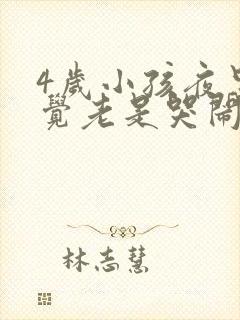 4歲小孩夜
覺老是哭鬧
林志慧